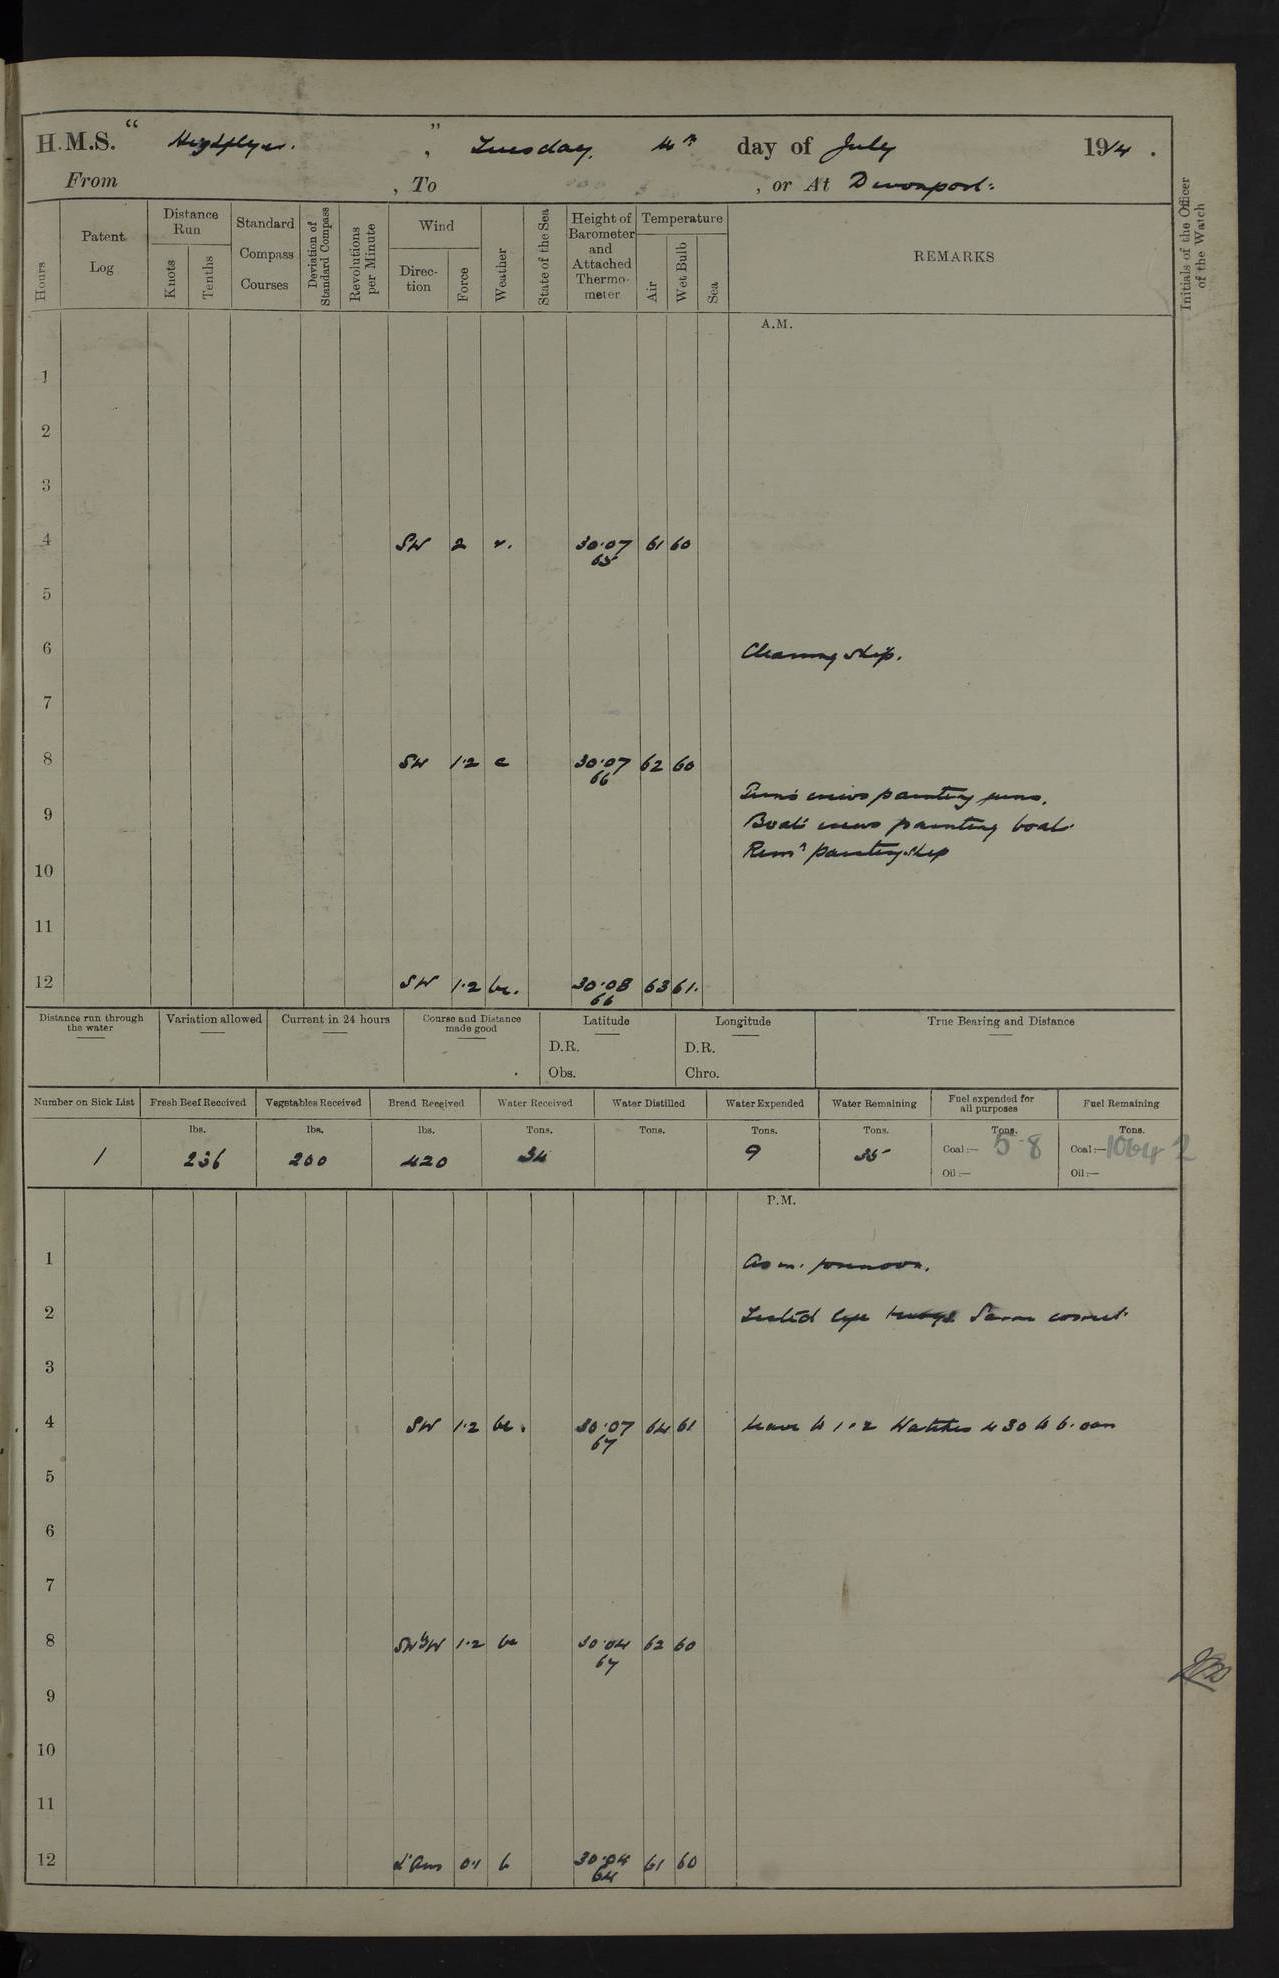 H.M.S. " Highflyer. " , Tuesday, day of July 1914 .
From , To , or At Devonport.
Hours
Patent Log
Distance Run
Knots
Tenths
Standard Compass Courses
Deviation of Standard Compass
Revolutions per Minute
Wind
Direction
Force
Weather
State of the Sea
Height of Barometer and Attached Thermometer
Temperature
Air
Wet Bulb
Sea
REMARKS
Initials of the Officer of the Watch
A.M.
1
2
3
4 SW 2 30.07 65 61 60
5
6 Cleaning ship.
7
8 SW 1.2 c 30.07 66 62 60
Guns crews painting guns.
9 Boats crews painting boats.
Remr painting ship
10
11
12 SW 1.2 bc. 30.08 66 63 61.
Distance run through the water
Variation allowed
Current in 24 hours
Course and Distance made good
Latitude
D.R.
Obs.
Longitude
D.R.
Chro.
True Bearing and Distance
Number on Sick List
Fresh Beef Received
Vegetables Received
Bread Received
Water Received
Water Distilled
Water Expended
Water Remaining
Fuel expended for all purposes
Fuel Remaining
lbs. lbs. lbs. Tons. Tons. Tons. Tons. Tons. Tons.
1 236 200 420 34 9 35 Coal:— 5.8 Coal:— 1064 2
Oil:— Oil:—
P.M.
1 As in forenoon.
2 Tested Sarm correct.
3
4 SW 1.2 bc. 30.07 67 64 61 Leave to 1 & 2 Watches 4 30 to 6.0am
5
6
7
8 SWbyW 1.2 bc 30.04 67 62 60
9
10
11
12 Lt Airs 0.1 b 30.04 64 61 60